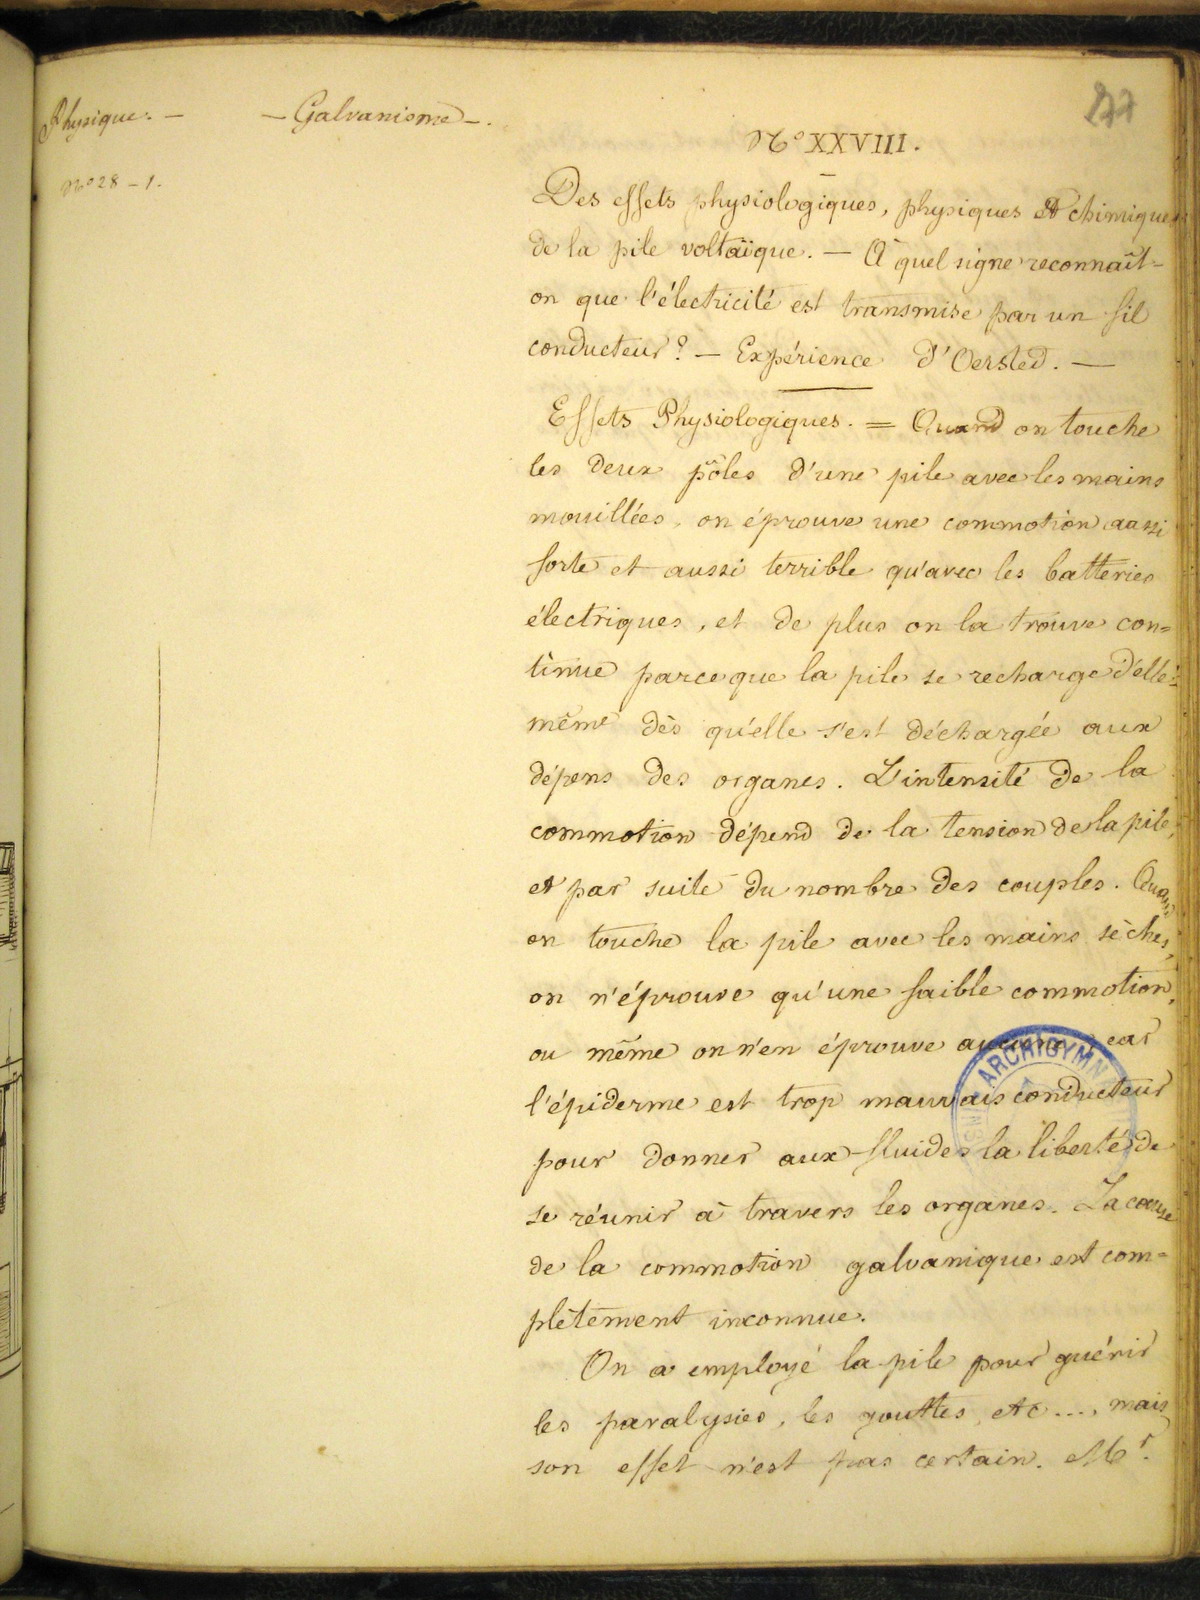 Physique. — — Galvanisme —.
N° 28 - 1.
N° XXVIII.
Des effets physiologiques, physiques et chimiques
de la pile voltaïque. — À quel signe reconnaît-
on que l'électricité est transmise par un fil
conducteur? — Expérience d'Oersted. —
Effets Physiologiques. = Quand on touche
les deux pôles d'une pile avec les mains
mouillées, on éprouve une commotion aussi
forte et aussi terrible qu'avec les batteries
électriques, et de plus on la trouve con=
tinue parce que la pile se recharge d'elle-
même dès qu'elle s'est déchargée aux
dépens des organes. L'intensité de la
commotion dépend de la tension de la pile,
et par suite du nombre des couples. Quand
on touche la pile avec les mains sèches,
on n'éprouve qu'une faible commotion,
ou même on n'en éprouve aucune, car
l'épiderme est trop mauvais conducteur
pour donner aux fluides la liberté de
se réunir à travers les organes. La cause
de la commotion galvanique est com=
plètement inconnue.
On a employé la pile pour guérir
les paralysies, les gouttes, etc...., mais
son effet n'est pas certain. Mr.
ARCHIGYMN